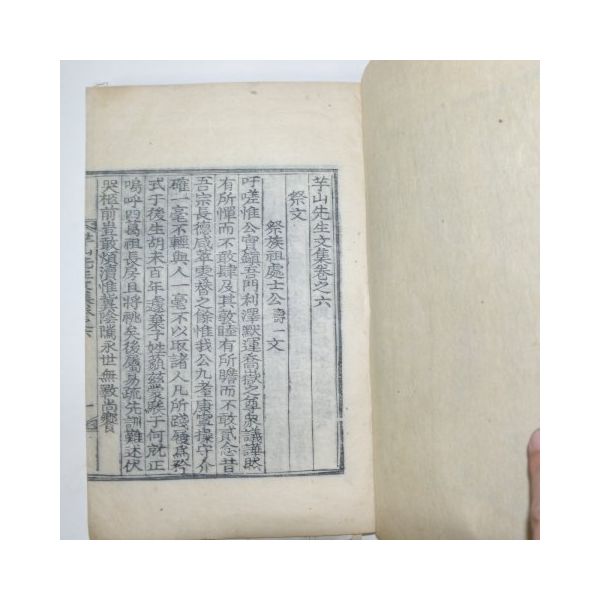 芋山先生文集卷之六
祭文
祭族祖處士公壽一文
吁嗟惟公實鎭吾門利澤默運喬嶽之尊衆議譁然
有所憚而不敢肆及其敦睦有所瞻而不敢貳念昔
吾宗長德咸萃雲替之餘惟我公九耋康寧操守介
確一毫不輕與人一毫不以取諸人凡所踐履爲矜
式于後生胡未百年遽棄子姓藐玆蒙騃于何就正
嗚呼四葛祖長房且將祧矣後屬易疏先訓難述伏
哭柩前豈敢煩瀆惟冀陰騭永世無斁尙饗